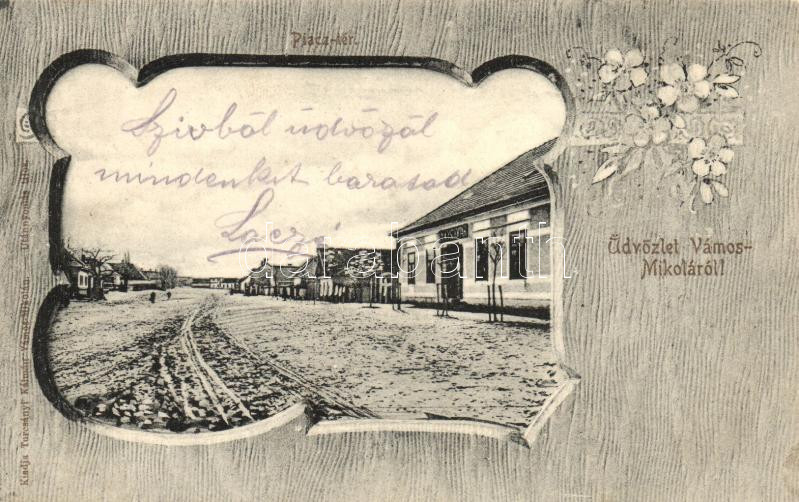 Piacz-tér.
Szivből üdvözöl
mindenkit barátod
Laczi
Üdvözlet Vámos-
Mikoláról!
Kiadja Turcsányi Kálmán Vámos-Mikolán.
darabanth